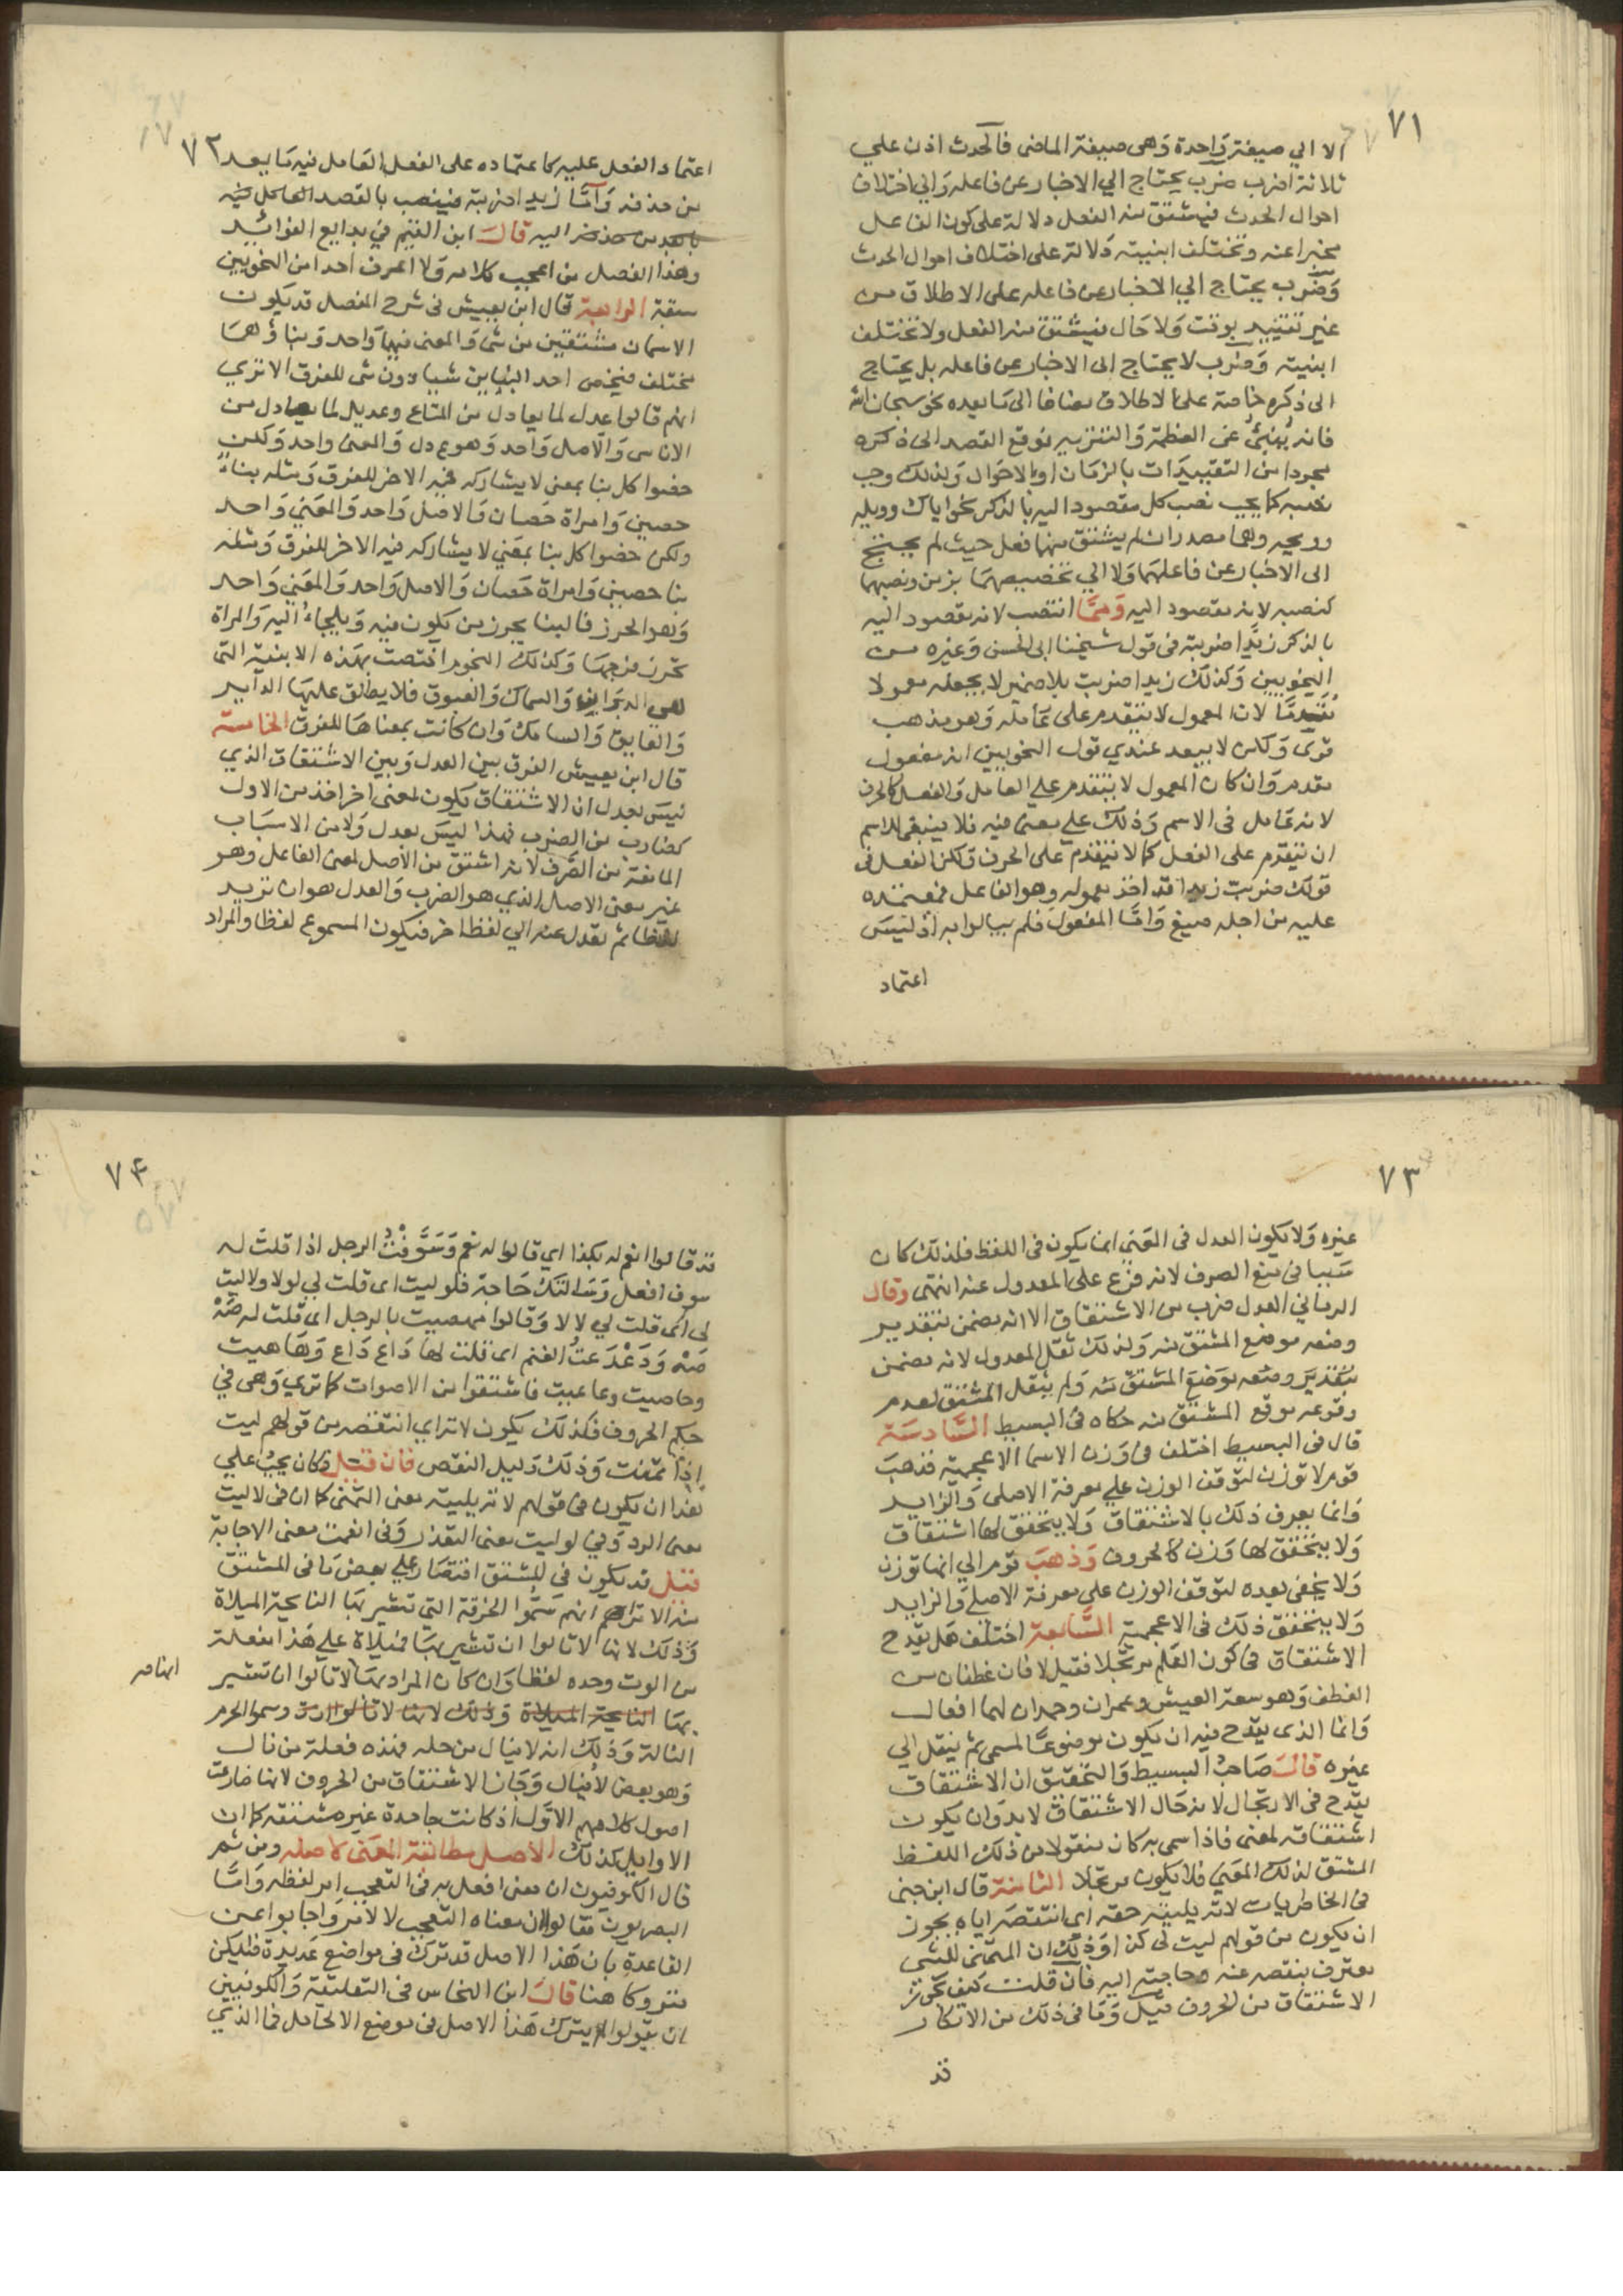 ٧١
الا الي صيغة واحدة وهى صيغة الماضى فالحدث اذن علي
ثلاثة اضرب ضرب يحتاج الي الاخبار عن فاعله والي اختلاف
احوال الحدث فيشتق منه الفعل دلالة على كون الفاعل
مخبرا عنه وتختلف ابنيته دلالة على اختلاف احوال الحدث
وضرب يحتاج الي الاخبار عن فاعله على الاطلاق من
غير تقييد بوقت ولا حال فيشتق منه الفعل ولا تختلف
ابنيته وضرب لا يحتاج الى الاخبار عن فاعله بل يحتاج
الى ذكره خاصة على الاطلاق مضافا الى ما بعده نحو سبحان الله
فانه ينبئ عن العظمة والتنزيه فوقع القصد الى ذكره
مجردا من التقييدات بالزمان او بالاحوال ولذلك وجب
نصبه كما يجب نصب كل مقصود اليه بالذكر نحو اياك وويله
وويحه وهما مصدران لم يشتق منهما فعل حيث لم يحتج
الى الاخبار عن فاعلهما ولا الي تخصيصهما بزمن ونصبهما
كنصبه لانه مقصود اليه ومما انتصب لانه مقصود اليه
بالذكر زيدا ضربته فى قول شيخنا ابى الحسن وغيره من
النحويين وكذلك زيدا ضربت بلا ضمير لا يجعله معمولا
مقدما لان المعمول لا يتقدم على عامله وهو مذهب
قوى ولكن لا يبعد عندي قول النحويين انه مفعول
مقدم وان كان المعمول لا يتقدم علي العامل والفعل كالحرف
لانه عامل فى الاسم وذلك علي معنى فيه فلا ينبغى للاسم
ان يتقدم على الفعل كما لا يتقدم على الحرف ولكن الفعل فى
قولك ضربت زيدا قد اخذ معموله وهو الفاعل فمعتمده
عليه من اجله صيغ واما المفعول فلم يبالوا به اذ ليس
اعتماد
٧٢
اعتماد الفعل عليه كاعتماده على الفعل العامل فيه ما بعد
من حذفه واما زيدا ضربته فينصب بالقصد العامل فيه
اليه قال ابن القيم في بدايع الفوائد
وهذا الفصل من اعجب كلامه ولا اعرف احدا من النحويين
سبقه الرابعة قال ابن يعيش فى شرح المفصل قد يكون
الاسمان مشتقين من شى والمعنى فيهما واحد وبناؤهما
مختلف فيختص احد البنايين شيا دون شى للفرق الا تري
انهم قالوا عدل لما يعادل من المتاع وعديل لما يعادل من
الاناسى والاصل واحد وهو ع د ل والمعنى واحد ولكن
خصوا كل بنا بمعنى لا يشاركه فيه الاخر للفرق ومثله بناء
حصين وامراة حصان والاصل واحد والمعني واحد
ولكن خصوا كل بنا بمعني لا يشاركه فيه الاخر للفرق ومثله
بنا حصين وامراة حصان والاصل واحد والمعني واحد
وهو الحرز فالبنا يحرز من يكون فيه ويلجاء اليه والمراة
تحرز فرجها وكذلك النجوم اختصت بهذه الابنية التى
هى الدبران والسماك والعيوق فلا يطلق عليها الدابر
والعايق والسامك وان كانت بمعناها للفرق الخامسة
قال ابن يعيش الفرق بين العدل وبين الاشتقاق الذي
ليس بعدل ان الاشتقاق يكون لمعنى اخر اخذ من الاول
كضارب من الضرب فهذا ليس بعدل ولا من الاسباب
المانعة من الصرف لانه اشتق من الاصل لمعنى الفاعل وهو
غير معنى الاصل الذي هو الضرب والعدل هو ان تريد
لفظا ثم تعدل عنه الي لفظ اخر فيكون المسموع لفظا والمراد
٧٣
غيره ولا يكون العدل فى المعني انما يكون فى اللفظ فلذلك كان
سببا فى منع الصرف لانه فرع على المعدول عنه انتهى وقال
الرماني العدل ضرب من الاشتقاق الا انه مضمن بتقدير
وضعه موضع المشتق منه ولذلك ثقل المعدول لانه مضمن
بتقدير وضعه موضع المشتق منه ولم يثقل المشتق لعدم
وقوعه موقع المشتق منه حكاه فى البسيط السادسة
قال فى البسيط اختلف فى وزن الاسما الاعجمية فذهب
قوم لا توزن لتوقف الوزن علي معرفة الاصلى والزايد
وانما يعرف ذلك بالاشتقاق ولا يتحقق لها اشتقاق
ولا يتحقق لها وزن كالحروف وذهب قوم الي انها توزن
ولا يخفى بعده لتوقف الوزن على معرفة الاصلى والزايد
ولا يتحقق ذلك فى الاعجمية السابعة اختلف هل يقدح
الاشتقاق فى كون العلم مرتجلا فقيل لا فان غطفان من
الغطف وهو سعة العيش وعمران وحمدان لهما افعال
وانما الذى يقدح فيه ان يكون موضوعا لمسمى ثم ينقل الي
غيره قال صاحب البسيط والتحقيق ان الاشتقاق
يقدح فى الارتجال لانه حال الاشتقاق لا بد وان يكون
اشتقاقه لمعنى فاذا سمى به كان منقولا من ذلك اللفظ
المشتق لذلك المعنى فلا يكون مرتجلا الثامنة قال ابن جنى
فى الخاطريات لاته يليته حقه اي انتقصه اياه يجوز
ان يكون من قولهم ليت لى كذا وذلك ان المتمنى للشى
معترف بنقصه عنه وحاجته اليه فان قلت كيف تجوز
الاشتقاق من الحروف قيل وما فى ذلك من الانكار
قد
٧٤
قد قالوا انعم له بكذا اي قالوا له نعم وسوفت الرجل اذا قلت له
سوف افعل وسالتك حاجة فلوليت اى قلت لي لولا ولا ليت
لى اى قلت لي لا لا وقالوا صهصيت بالرجل اى قلت له صه
صه ودعدعت الغنم اى قلت لها داع داع وهاهيت
وحاحيت وعاعيت فاشتقوا من الاصوات كما تري وهى فى
حكم الحروف فكذلك يكون لاته اي انتقصه من قولهم ليت
اذا تمنت وذلك دليل النقص فان قيل فكان يجب علي
هذا ان يكون فى قولهم لاته يليته معنى التمنى كما ان فى لاليت
معنى الرد وفي لوليت معنى التعذر وفى انعمت معنى الاجابة
قيل قد يكون فى المشتق اقتصار علي بعض ما فى المشتق
منه الا تراهم انهم سموا الخرقة التي تشير بها النايحة الميلاة
وذلك لانها لا تالوا ان تشير بها فميلاة علي هذا مفعلة
من الوت وحده لفظا وان كان المراد بها لا تالوا ان تشير
بها النايحة الميلاة وذلك لانها لا تالوا ان وسموا الحرم
النالة وذلك انه لا ينال من حله فهذه فعلة من نال
وهو بعض لا ينال وجاز الاشتقاق من الحروف لانها ضارعت
اصول كلامهم الاول اذ كانت جامدة غير مشتقة كما ان
الاوايل كذلك الاصل مطابقة المعنى لاصله ومن ثم
قال الكوفيون ان معنى افعل به فى التعجب امر لفظه واما
البصريون فقالوا ان معناه التعجب لا الامر واجابوا عن
القاعدة بان هذا الاصل قد ترك فى مواضع عديدة فليكن
متروكا هنا قال ابن النحاس فى التعليقة والكوفيين
ان يقولوا لا يترك هذا الاصل فى موضع الا لحامل فما الذي